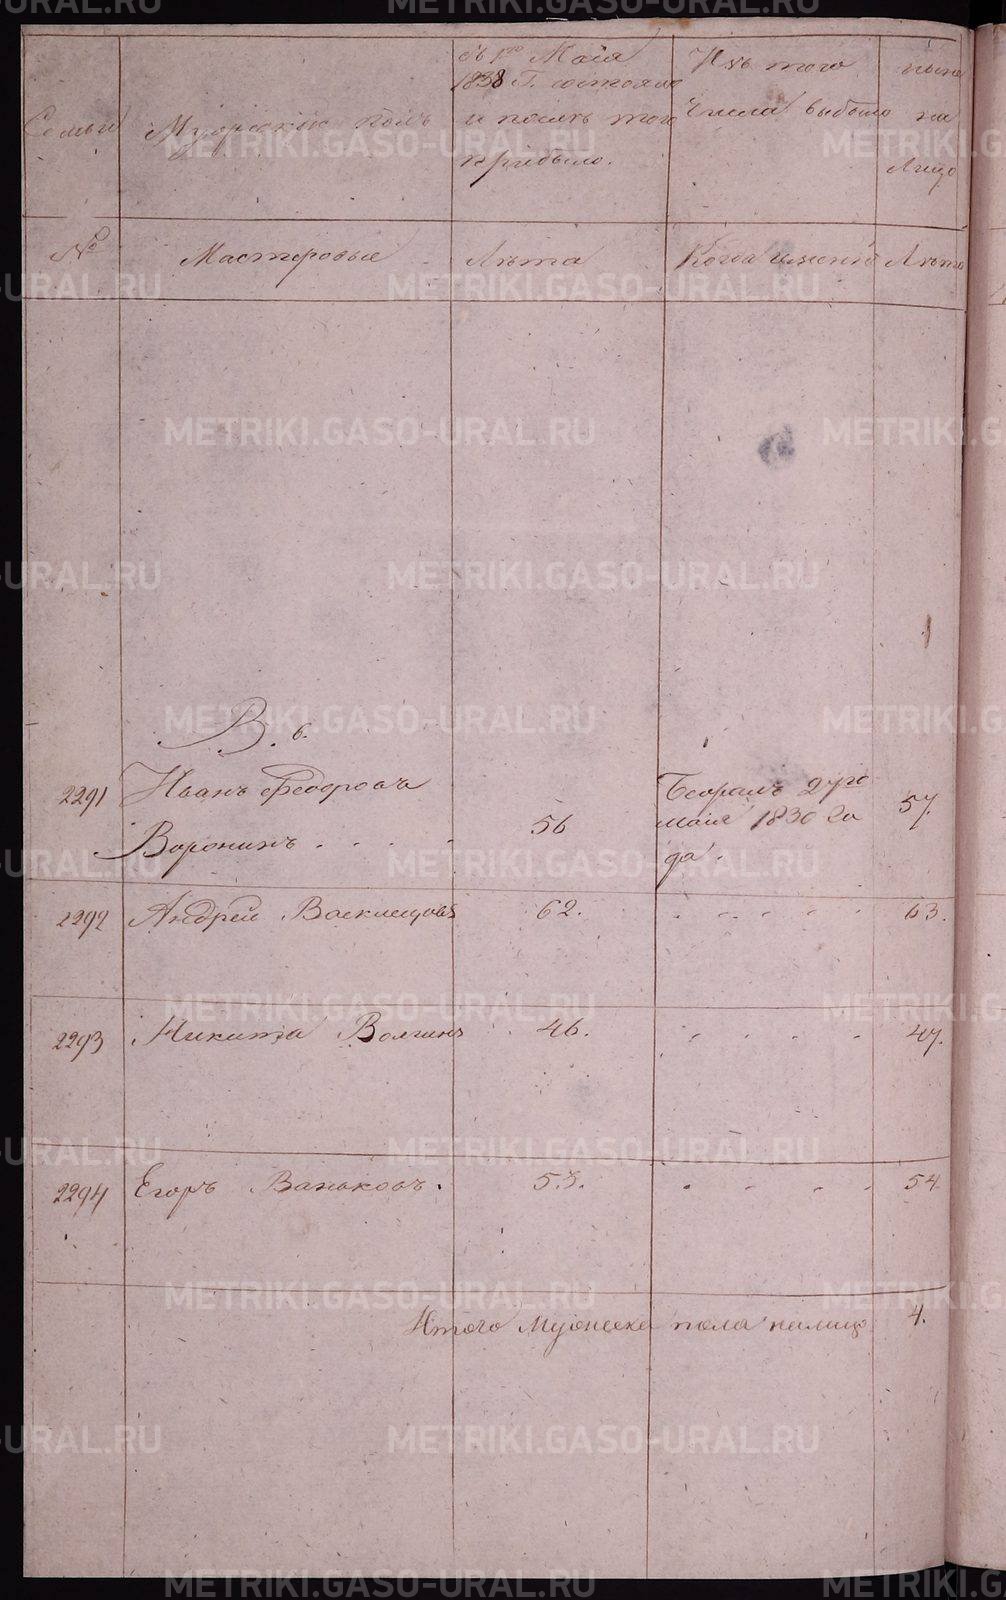 Семьи
Мужескiй полъ
съ 1го Маiя
1838 Г. состояло
и послѣ того
прибыло.
Изъ того
числа выбыло
ныне
на
лицо
№
Мастеровые
Лѣта
Когда именно
Лѣта
В. б.
2291
Иванъ Федоровъ
Воронинъ . . . .
56
маiя 1830 го
да.
57.
2292
Андрей
62.
63.
2293
Никита Волгинъ
46.
47.
2294
Егоръ Ваньковъ.
53.
54
Итого Мужеска пола налицо
4.
METRIKI.GASO-URAL.RU